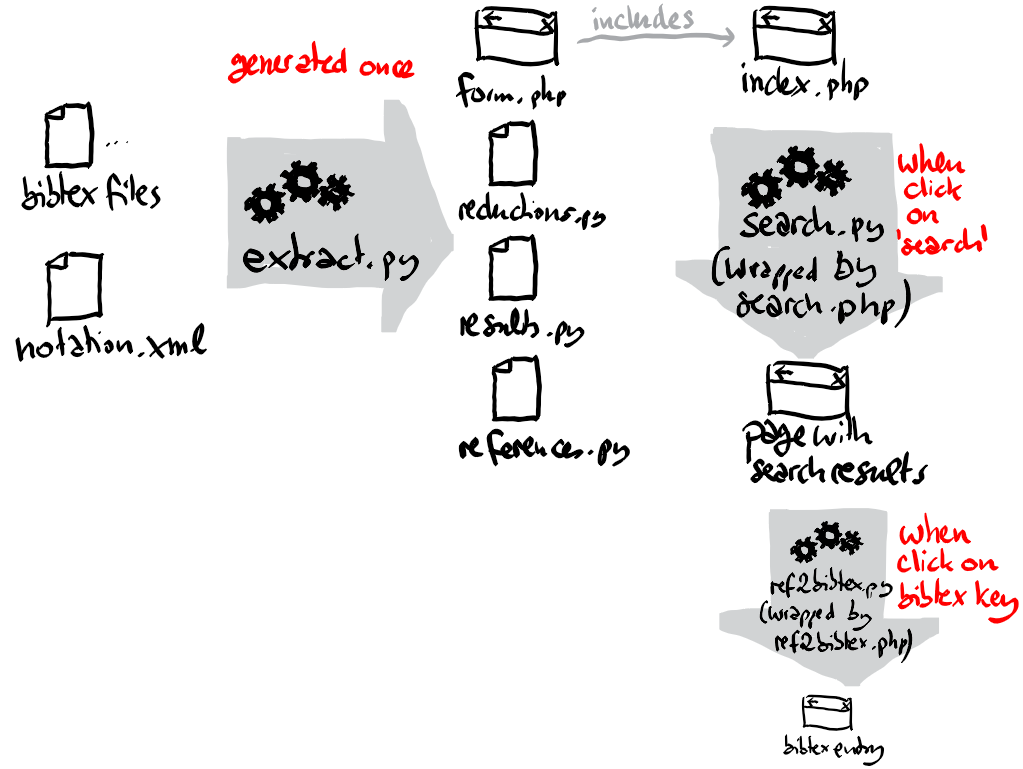 generated once
bibtex files
...
notation.xml
extract.py
form.php
includes
index.php
reductions.py
results.py
references.py
search.py
(wrapped by
search.php)
when
click
on
'search'
page with
search results
ref2bibtex.py
(wrapped by
ref2bibtex.php)
when
click on
bibtex key
bibtex entry